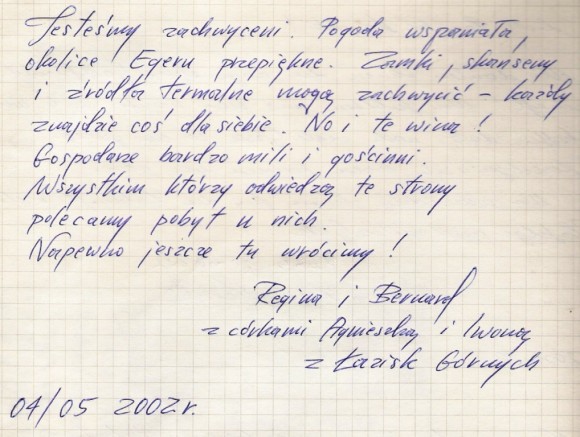 Jesteśmy zachwyceni. Pogoda wspaniała,
okolice Egeru przepiękne. Zamki, skanseny
i źródła termalne mogą zachwycić – każdy
znajdzie coś dla siebie. No i te wina!
Gospodarze bardzo mili i gościnni.
Wszystkim którzy odwiedzą te strony
polecamy pobyt u nich.
Napewno jeszcze tu wrócimy!
Regina i Bernard
z córkami Agnieszką i Iwoną
z Łazisk Górnych
04/05 2002r.